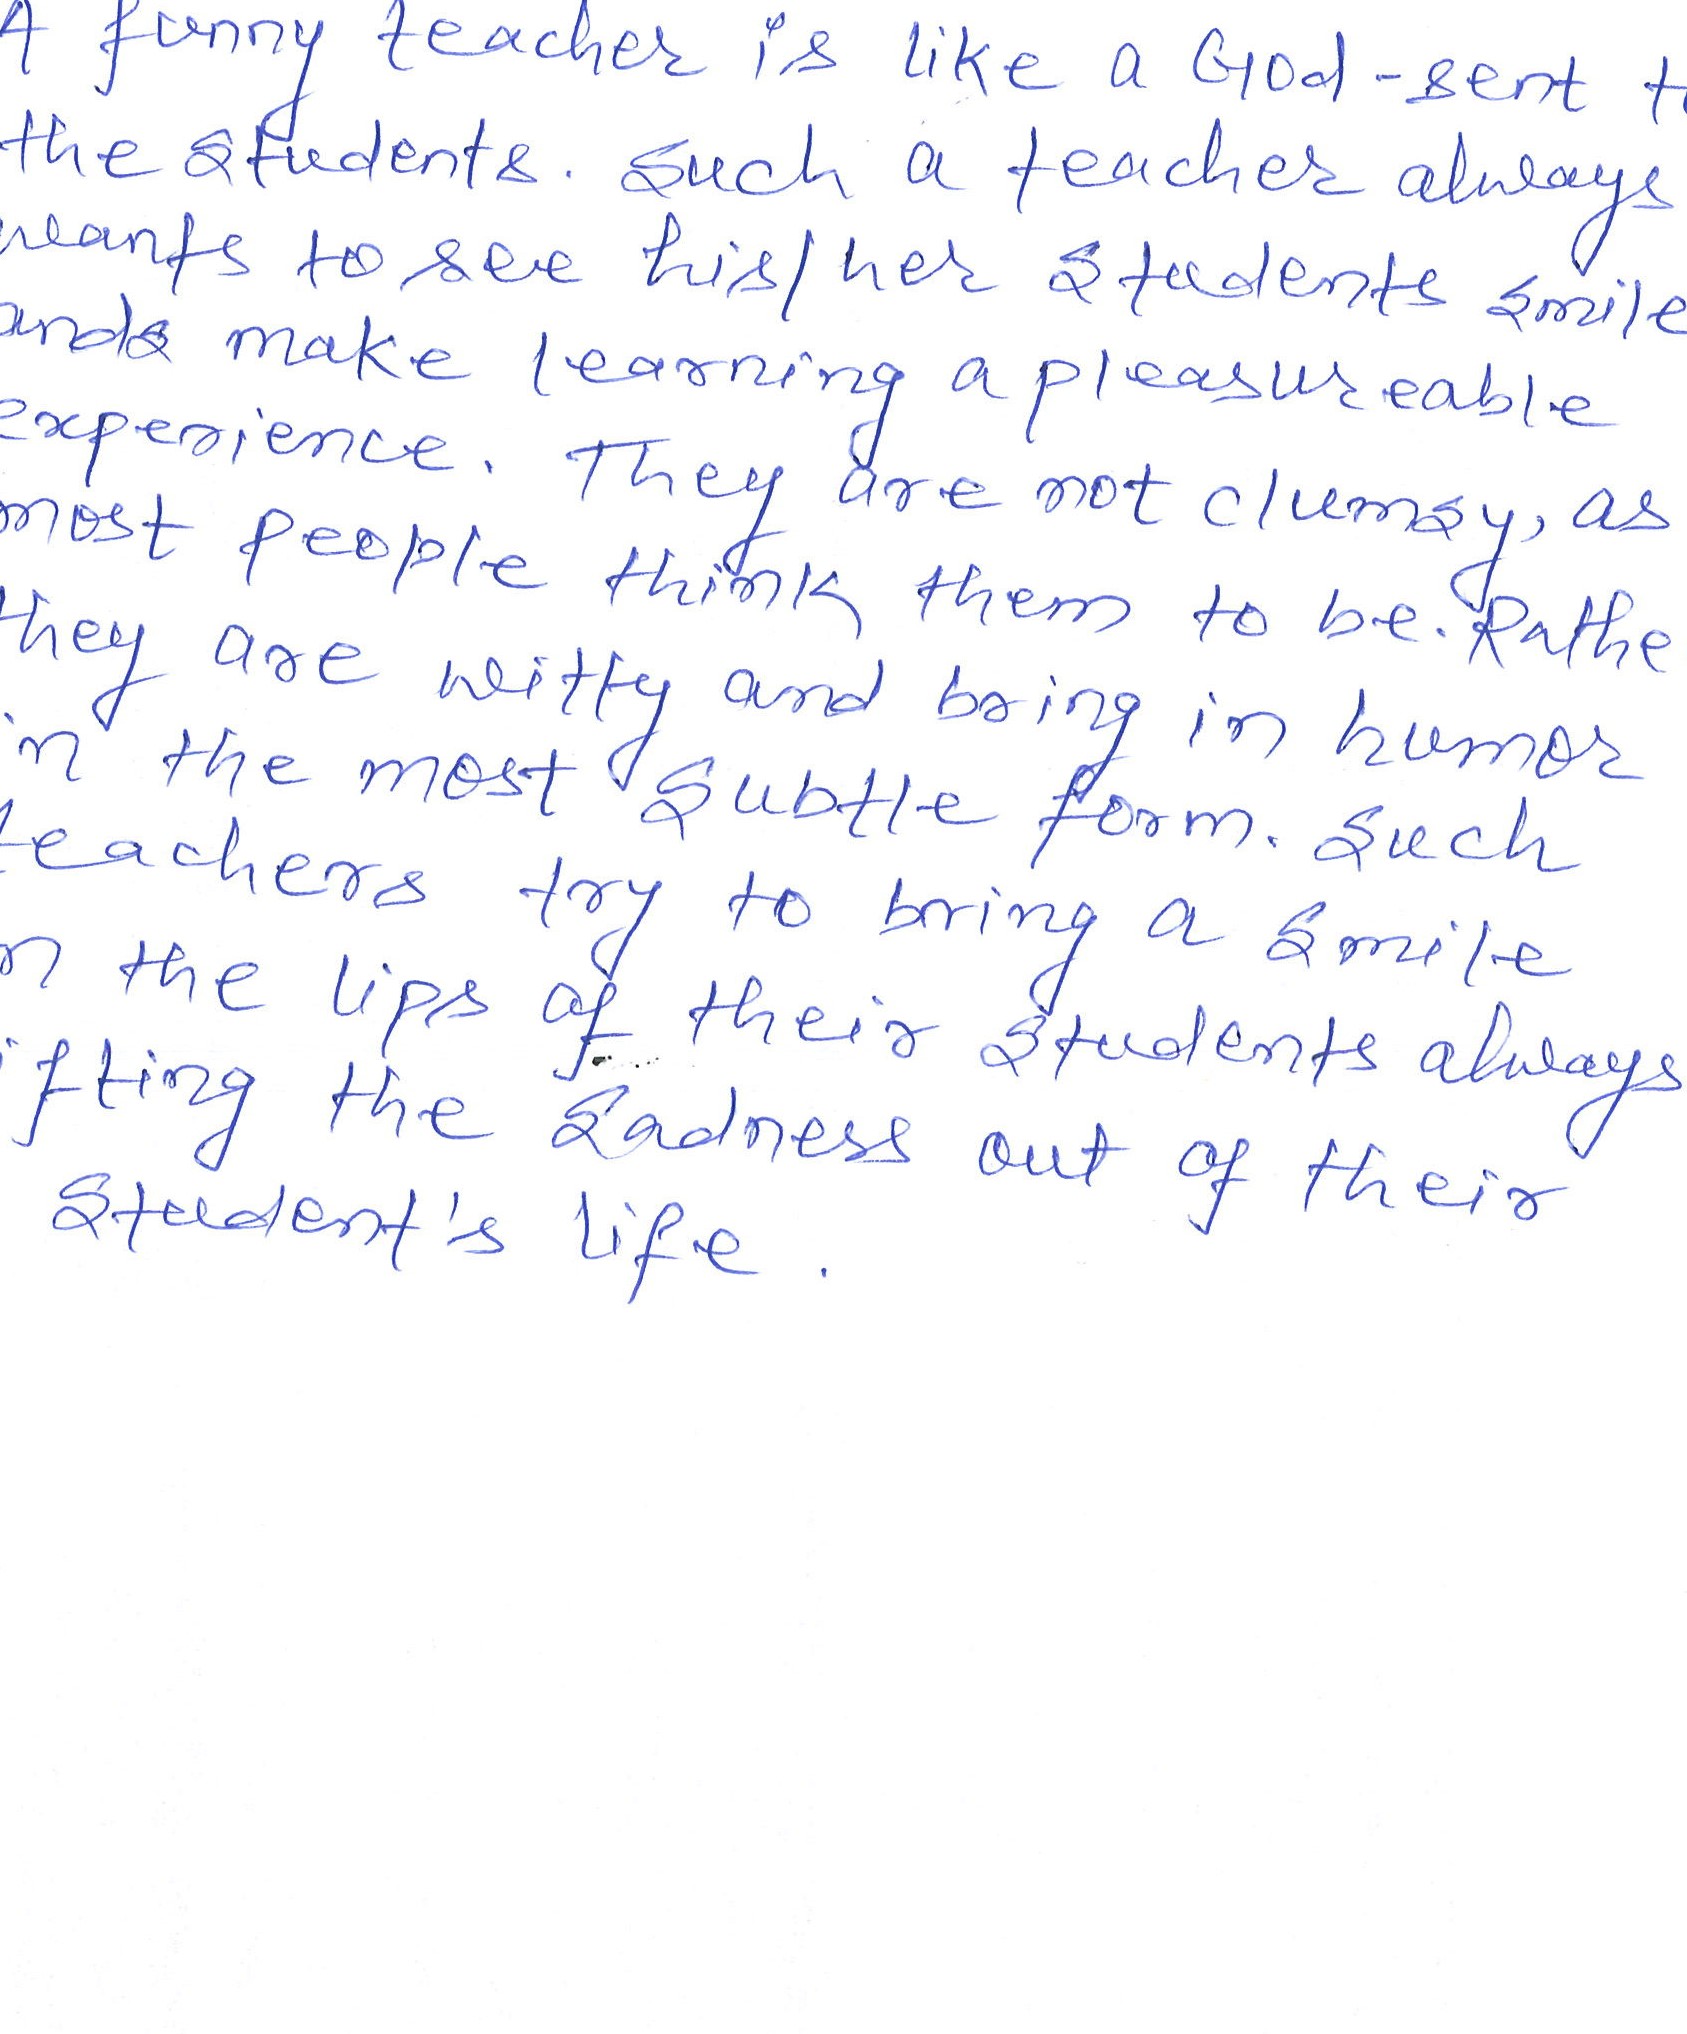 A funny teacher is like a God-sent to
the students. Such a teacher always
wants to see his/her students smile
and & make learning a pleasureable
experience. They are not clumsy, as
most people think them to be. Rathe
they are witty and bring in humor
in the most subtle form. Such
teachers try to bring a smile
n the lips of their students always
ifting the sadness out of their
student's life.